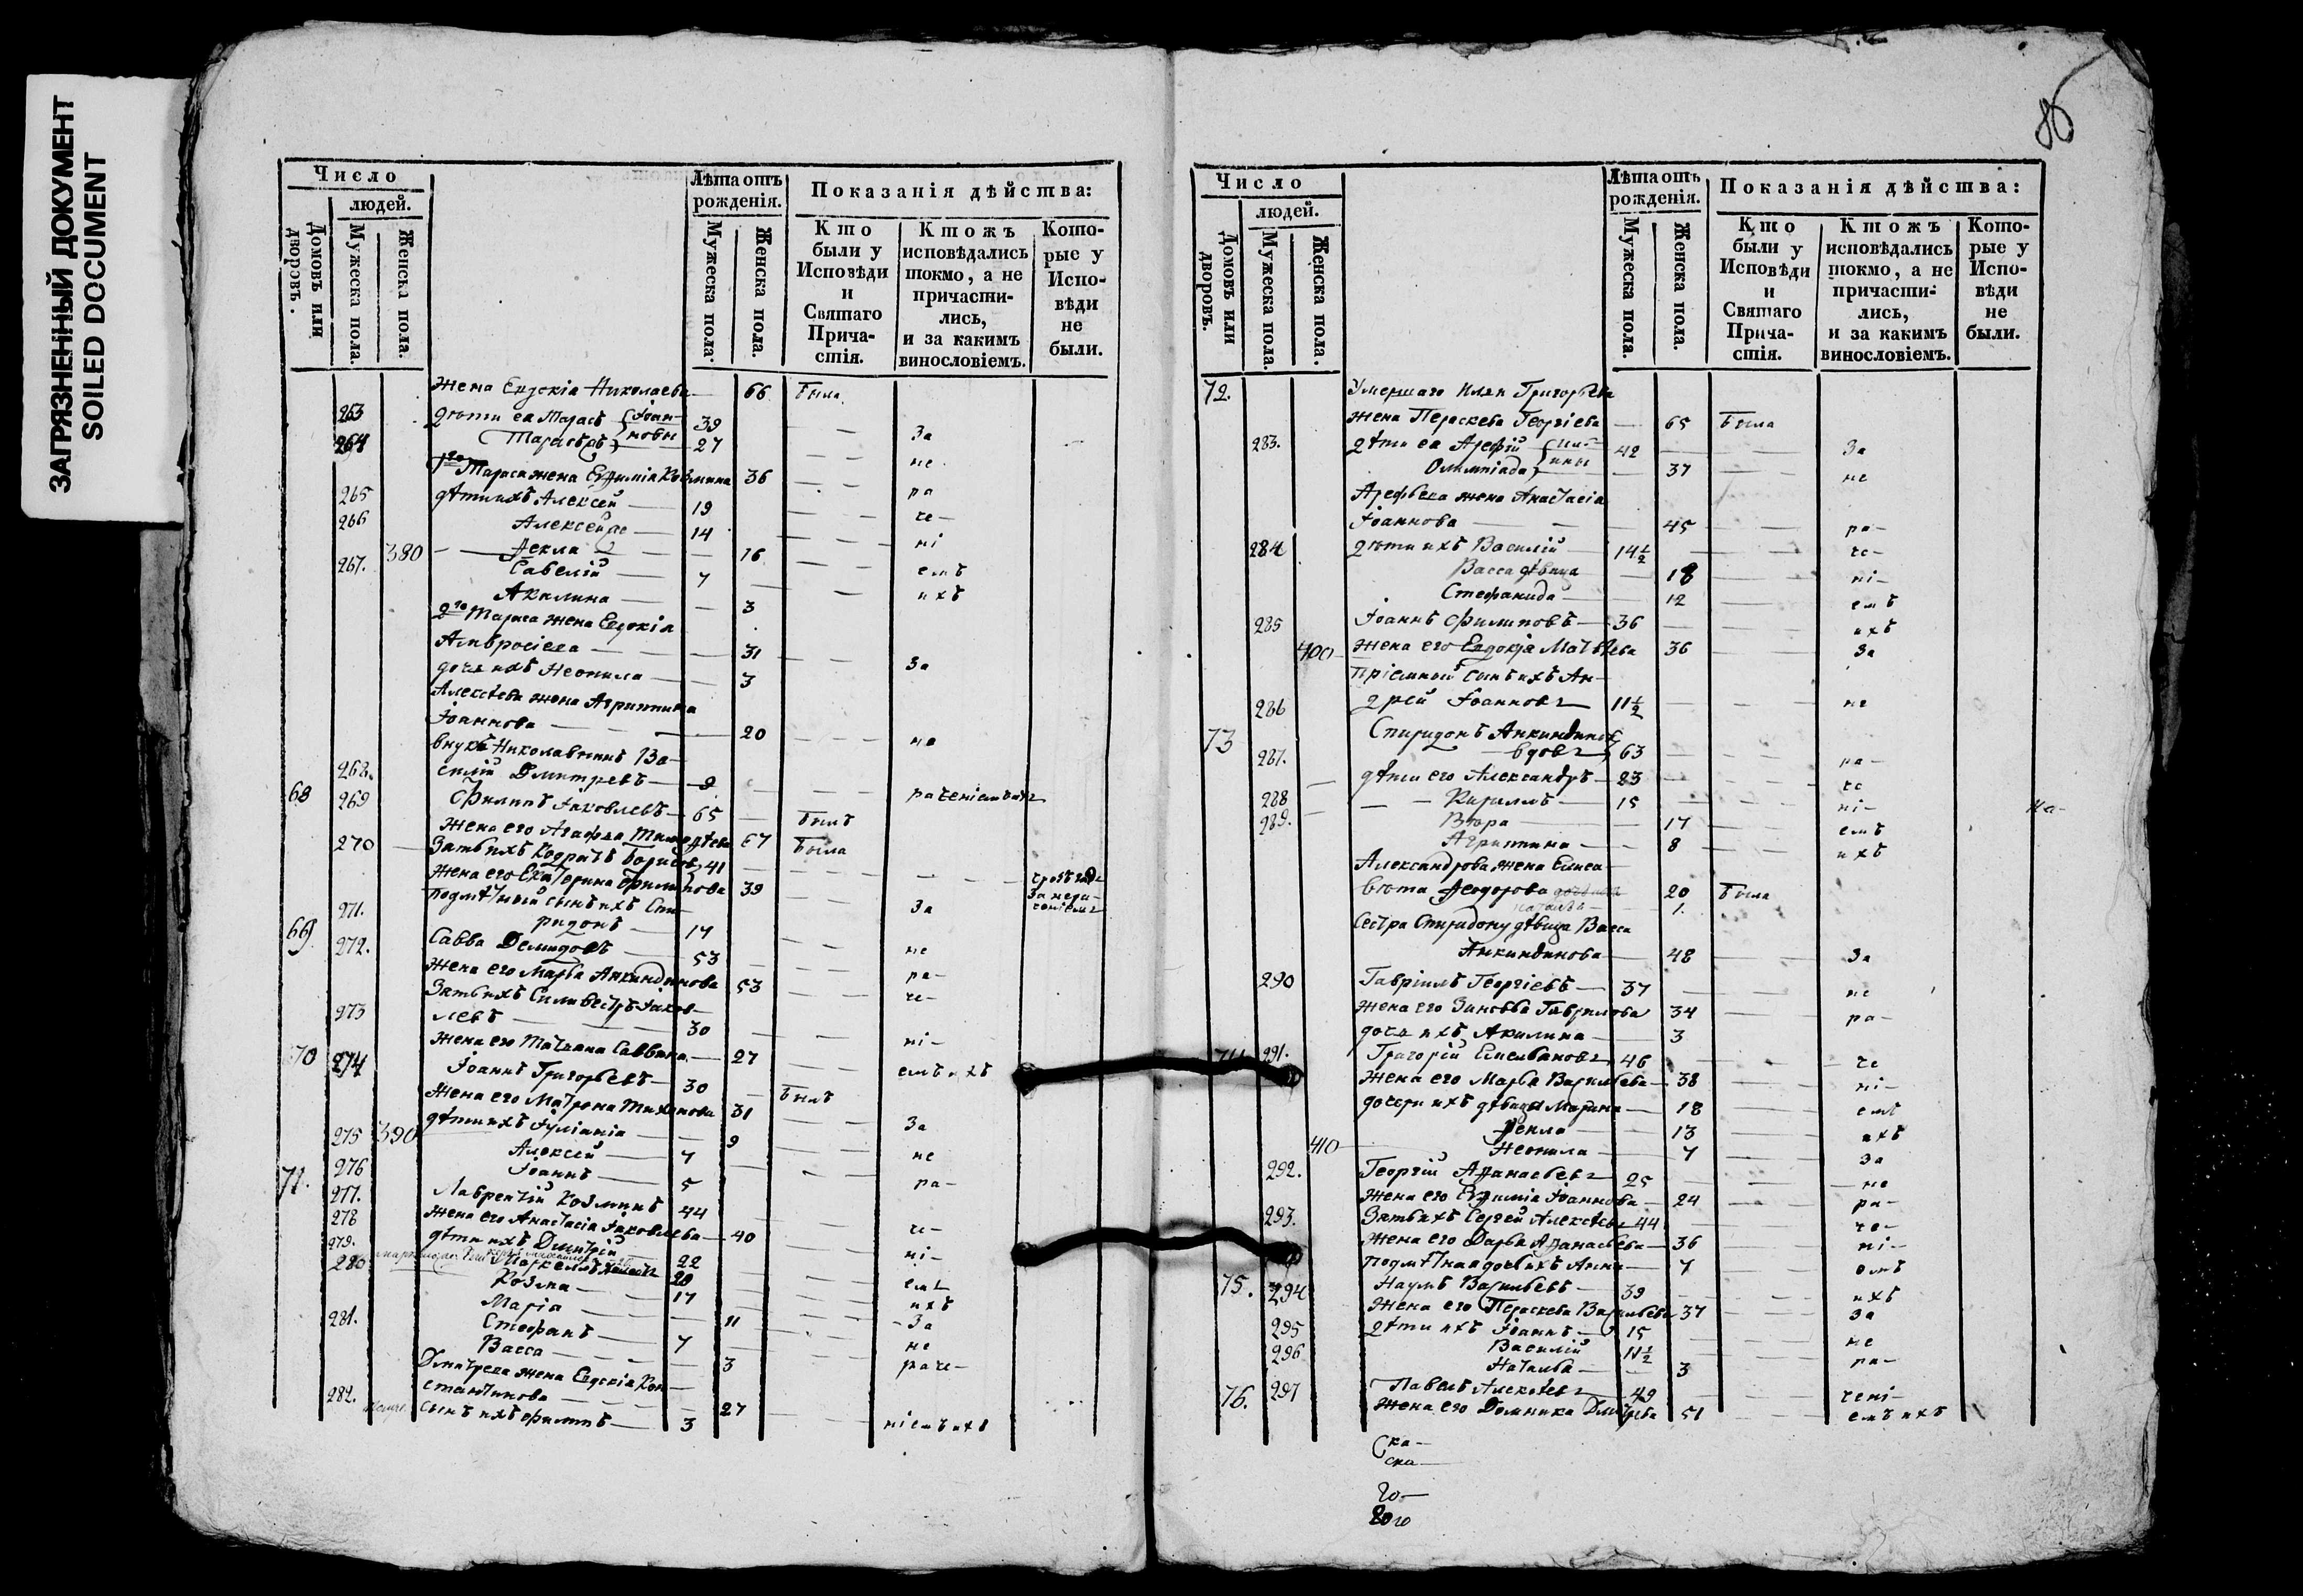 ЗАГРЯЗНЕННЫЙ ДОКУМЕНТ
SOILED DOCUMENT
Число
людей.
Домовъ или дворовъ.
Мужеска пола.
Женска пола.
Лѣта отъ рожденія.
Мужеска пола.
Женска пола.
Показанія дѣйства:
Кто были у Исповѣди и Святаго Причастія.
Ктожъ исповѣдались токмо, а не причастились, и за какимъ винословіемъ.
Которые у Исповѣди не были.
Жена Евдокія Николаева 66 была
263 дѣти еа Тарасъ Іоан- 39 За
264 Тарасъ новы 27 не
Тараса жена Евѳимія Козмина 36 ра
265 дѣти ихъ Алексей 19 че-
266 Алексей 14 ні
380 Ѳекла 16
267. Савелій 7 емъ
Акилина 3 ихъ
2го Тараса жена Евдокія
Амвросіева 31
дочь ихъ Неонила 3 За
Алексѣева жена Агриппина
Іоаннова 20 не
внукъ Николавнинъ Ва-
268. силій Дмитревъ 9
68 269 Филипъ Іаковлевъ 65 былъ раченіемъ
Жена его Агафья Тимоѳѣева 67 была
270 Зять ихъ Кодратъ Борисовъ 41
Жена его Екатерина Филипова 39
271. сынъ ихъ Спи- За
ридонъ 17
69 272. Савва Демидовъ 53 не
Жена его Марѳа Анкиндинова 53 ра-
Зять ихъ Силивестръ Іаков- че-
273 левъ 30
Жена его Татьяна Саввина 27 ні-
70 274 Іоаннъ Григорьевъ 30 былъ емъ ихъ
Жена его Матрона Тихонова 31
390 дѣти ихъ Іуліанія 9 За
275 Алексей 7 не
276 Іоаннъ 5 ра-
71. 277. Лаврентій Козминъ 44
Жена его Анастасія Іаковлева 40 че-
278 дѣти ихъ Дмитрій 22 ні-
279. Маркеллъ 20
280 Козма 17 емъ
Марія 11 ихъ
281. Стефанъ 7 За
Васса 3 не
Дмитрева жена Евдокія Кон- раче-
стантинова 27
282. сынъ ихъ Филипъ 3 ніемъ ихъ
Число
людей.
Домовъ или дворовъ.
Мужеска пола.
Женска пола.
Лѣта отъ рожденія.
Мужеска пола.
Женска пола.
Показанія дѣйства:
Кто были у Исповѣди и Святаго Причастія.
Ктожъ исповѣдались токмо, а не причастились, и за какимъ винословіемъ.
Которые у Исповѣди не были.
72. Умершаго Иліи Григорьева
Жена Параскева Георгіева 65 была
283. дѣти еа Арефій 42 За
Олимпіада 37 не
Арефьева жена Анастасіа
Іоаннова 45 ра-
284 дѣти ихъ Василій 14½ че-
Васса дѣвица 18 ні-
Стефанида 12 емъ
285 Іоаннъ Филиповъ 36 ихъ
400 Жена его Евдокія Матвѣева 36 За
Пріемный сынъ ихъ Ан-
286 дрей Іоанновъ 11½ не
73 Спиридонъ Анкиндиновъ
287. вдовъ 63 ра-
дѣти его Александръ 23 че
288 Кириллъ 15 ні-
289. Вѣра 17 емъ
Агриппина 8 ихъ
Александрова жена Елиса-
вета Ѳеодорова 20 была
1.
Сестра Спиридону дѣвица Васса
Анкиндинова 48 За
290 Гавріилъ Георгіевъ 37 не
Жена его Зиновьа Гаврилова 34 ра-
дочь ихъ Акилина 3
74 291. Григорій Емельяновъ 46 че
Жена его Марѳа Васильева 38 ні-
дочери ихъ дѣвицы Марина 18 емъ
Ѳекла 13 ихъ
410 Неонила 7 За
292. Георгій Аѳанасьевъ 25 не
Жена его Евѳимія Іоаннова 24 ра-
293. Зять ихъ Сергей Алексѣевъ 44 че-
Жена его Дарья Аѳанасьева 36 ні-
дочь ихъ Анна 7 емъ
75. 294 Наумъ Васильевъ 39 ихъ
Жена его Параскева Васильева 37 За
295 дѣти ихъ Іоаннъ 15 не
296 Василій 11½ ра-
Наталья 3
76. 297 Павелъ Алексѣевъ 49 чені-
Жена его Домника Дмитрева 51 емъ ихъ